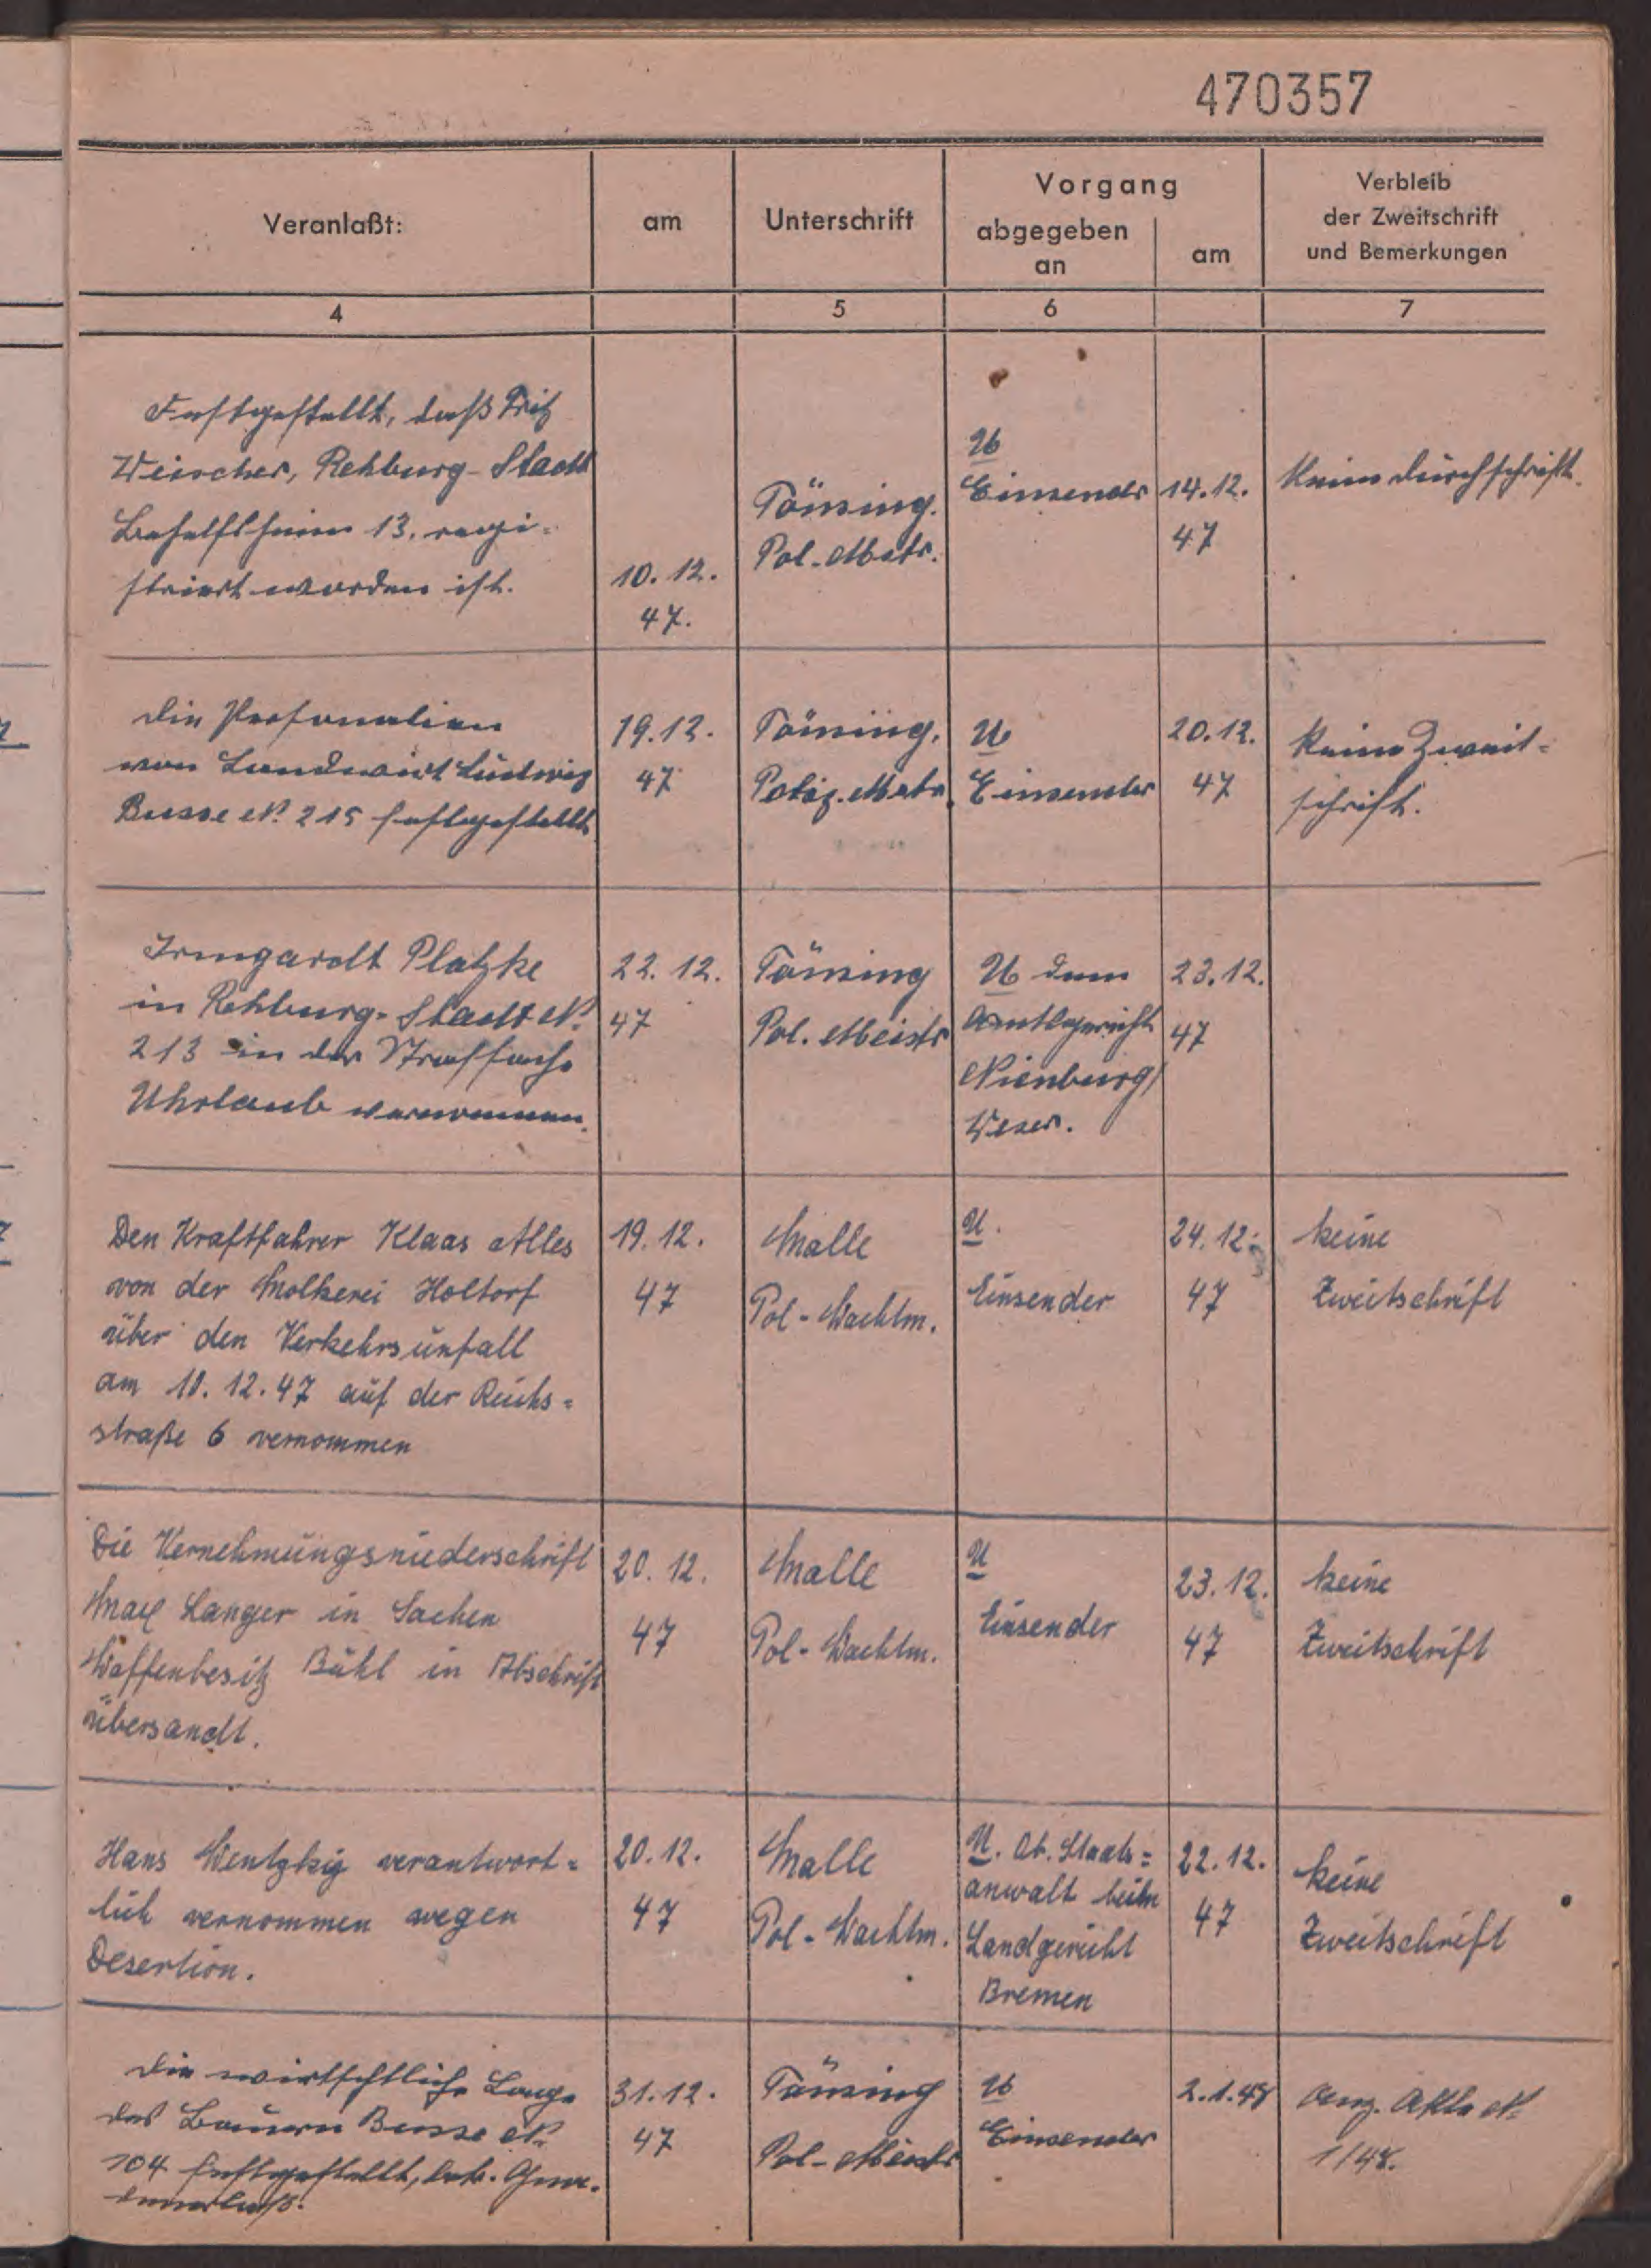 470357
Veranlaßt:
am
Unterschrift
Vorgang
abgegeben
an
am
Verbleib
der Zweitschrift
und Bemerkungen
4
5
6
7
Festgestellt, daß Fritz
Weischer, Rehburg-Stadt
Behelfsheim 13, regi-
striert worden ist.
10.12.
47.
Tönsing.
Pol.-Mstr.
U
Einsender
14.12.
47
Keine Durchschrift.
Die Personalien
von Landwirt Ludwig
Busse N. 215 festgestellt
19.12.
47
Tönsing.
Poliz. Mstr.
U
Einsender
20.12.
47
Keine Zweit-
schrift.
Irmgardt Platzke
in Rehburg-Stadt N.
213 in der Strafsache
Uhrlaub vernommen.
22.12.
47
Tönsing
Pol. Meistr
U dem
Amtsgericht
Nienburg/
Weser.
23.12.
47
Den Kraftfahrer Klaas Alles
von der Molkerei Holtorf
über den Verkehrsunfall
am 10.12.47 auf der Reichs=
straße 6 vernommen
19.12.
47
Malle
Pol-Wachtm.
U.
Einsender
24.12.
47
keine
Zweitschrift
Die Vernehmungsniederschrift
Max Langer in Sachen
Waffenbesitz Bühl in Abschrift
übersandt.
20.12.
47
Malle
Pol-Wachtm.
U
Einsender
23.12.
47
keine
Zweitschrift
Hans verantwort=
lich vernommen wegen
Desertion.
20.12.
47
Malle
Pol-Wachtm.
U. Ob. Staats=
anwalt beim
Landgericht
Bremen
22.12.
47
keine
Zweitschrift
Die wirtschftliche Lage
des Bauern Busse N.
104 festgestellt, betr.
31.12.
47
Tönsing
Pol-Meistr
U
Einsender
2.1.48
Akte N.
1/48.